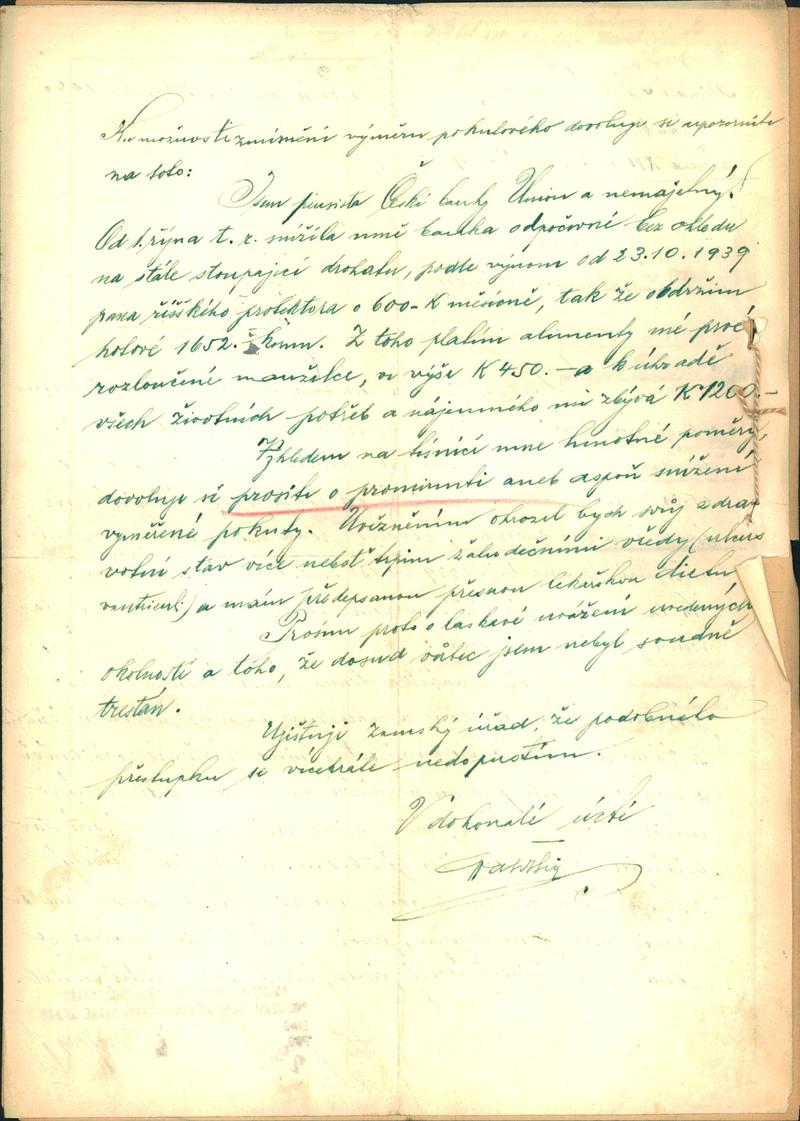 K možnosti zmírnění výměru pokutového dovoluji si upozorniti
na toto:
Jsem pensista České banky Union a nemajetný!
Od 1. října t. r. snížila mně banka odpočivné bez ohledu
na stále stoupající drahotu, podle výnosu od 23.10.1939
pana říšského protektora o 600.- K měsíčně, tak že obdržím
hotově 1652.- korun. Z toho platím alimenty mé prvé
rozloučené manželce, ve výše K 450.- a k úhradě
všech životních potřeb a nájemného mi zbývá K 1200.-
Vzhledem na tísnící mne hmotné poměry,
dovoluji si prositi o prominutí aneb aspoň snížení
vyměřené pokuty. Uvězněním ohrozil bych svůj zdra-
votní stav více neboť trpím žaludečními vředy (ulcus
ventriculi) a mám předepsanou přesnou lékařskou dietu.
Prosím proto o laskavé uvážení uvedených
okolností a toho, že dosud vůbec jsem nebyl soudně
trestán.
Ujišťuji zemský úřad, že podobného
přestupku se vícekráte nedopustím.
V dokonalé úctě